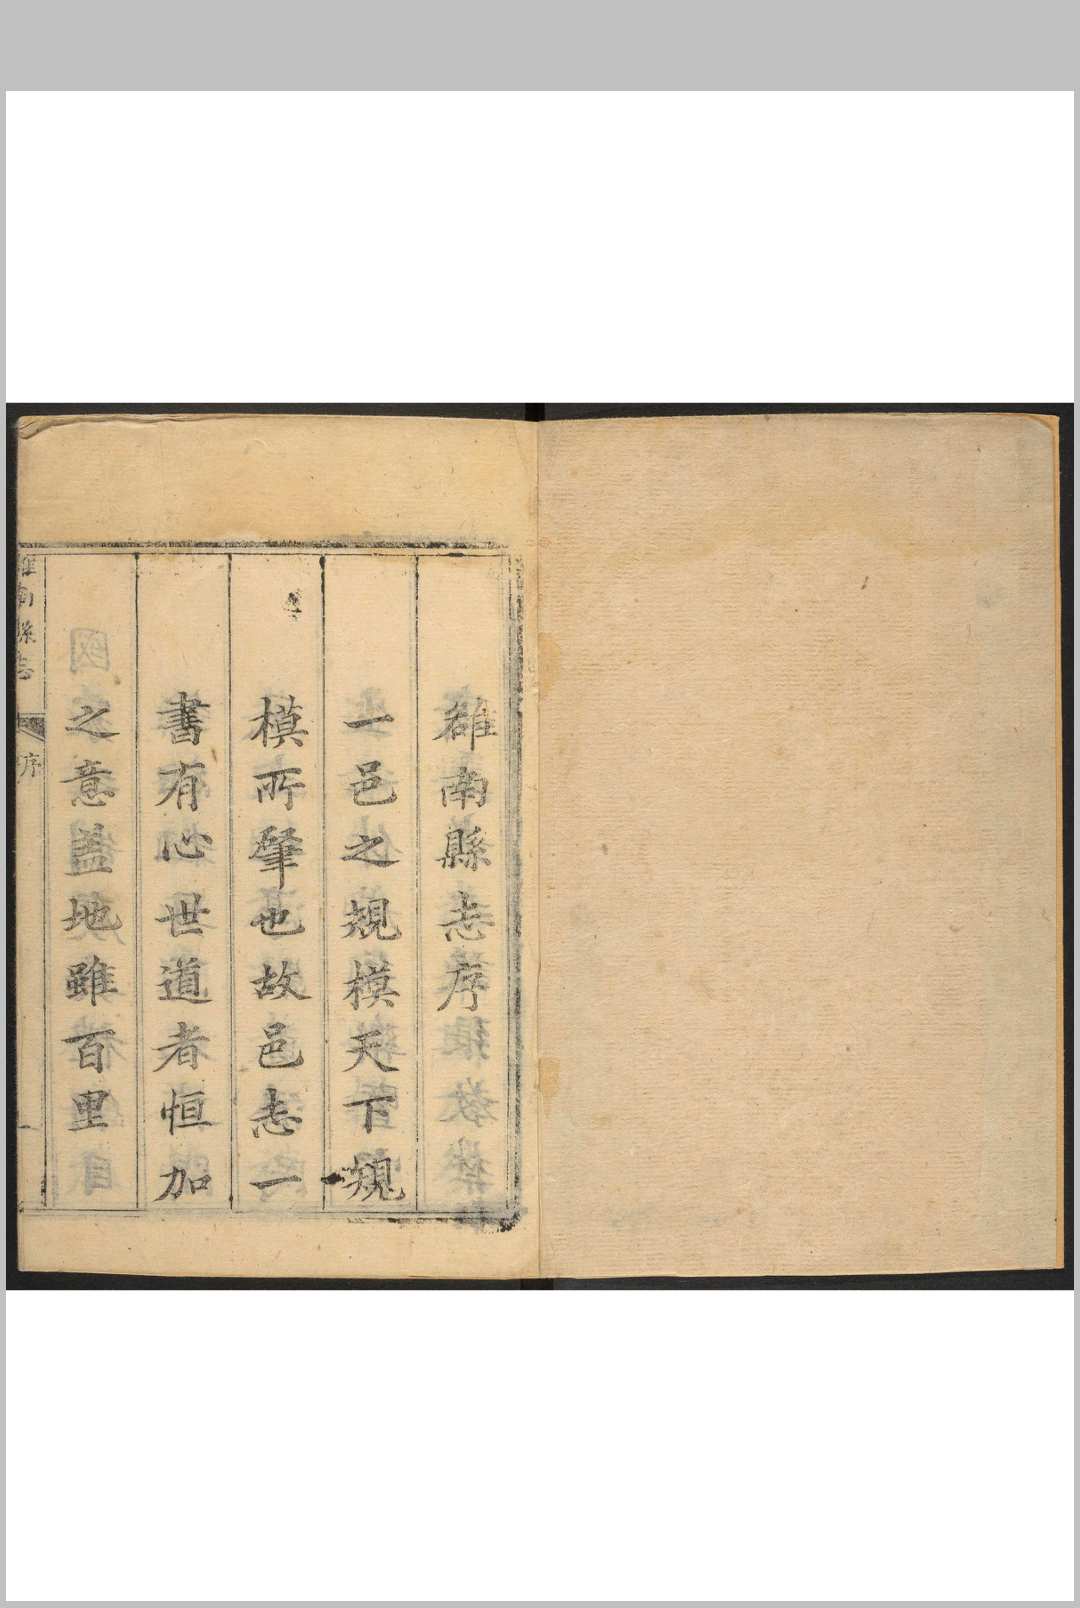 雒南縣志序
一邑之規模天下規
模所肇也故邑志一
書有心世道者恒加
之意蓋地雖百里
雒南縣志 序